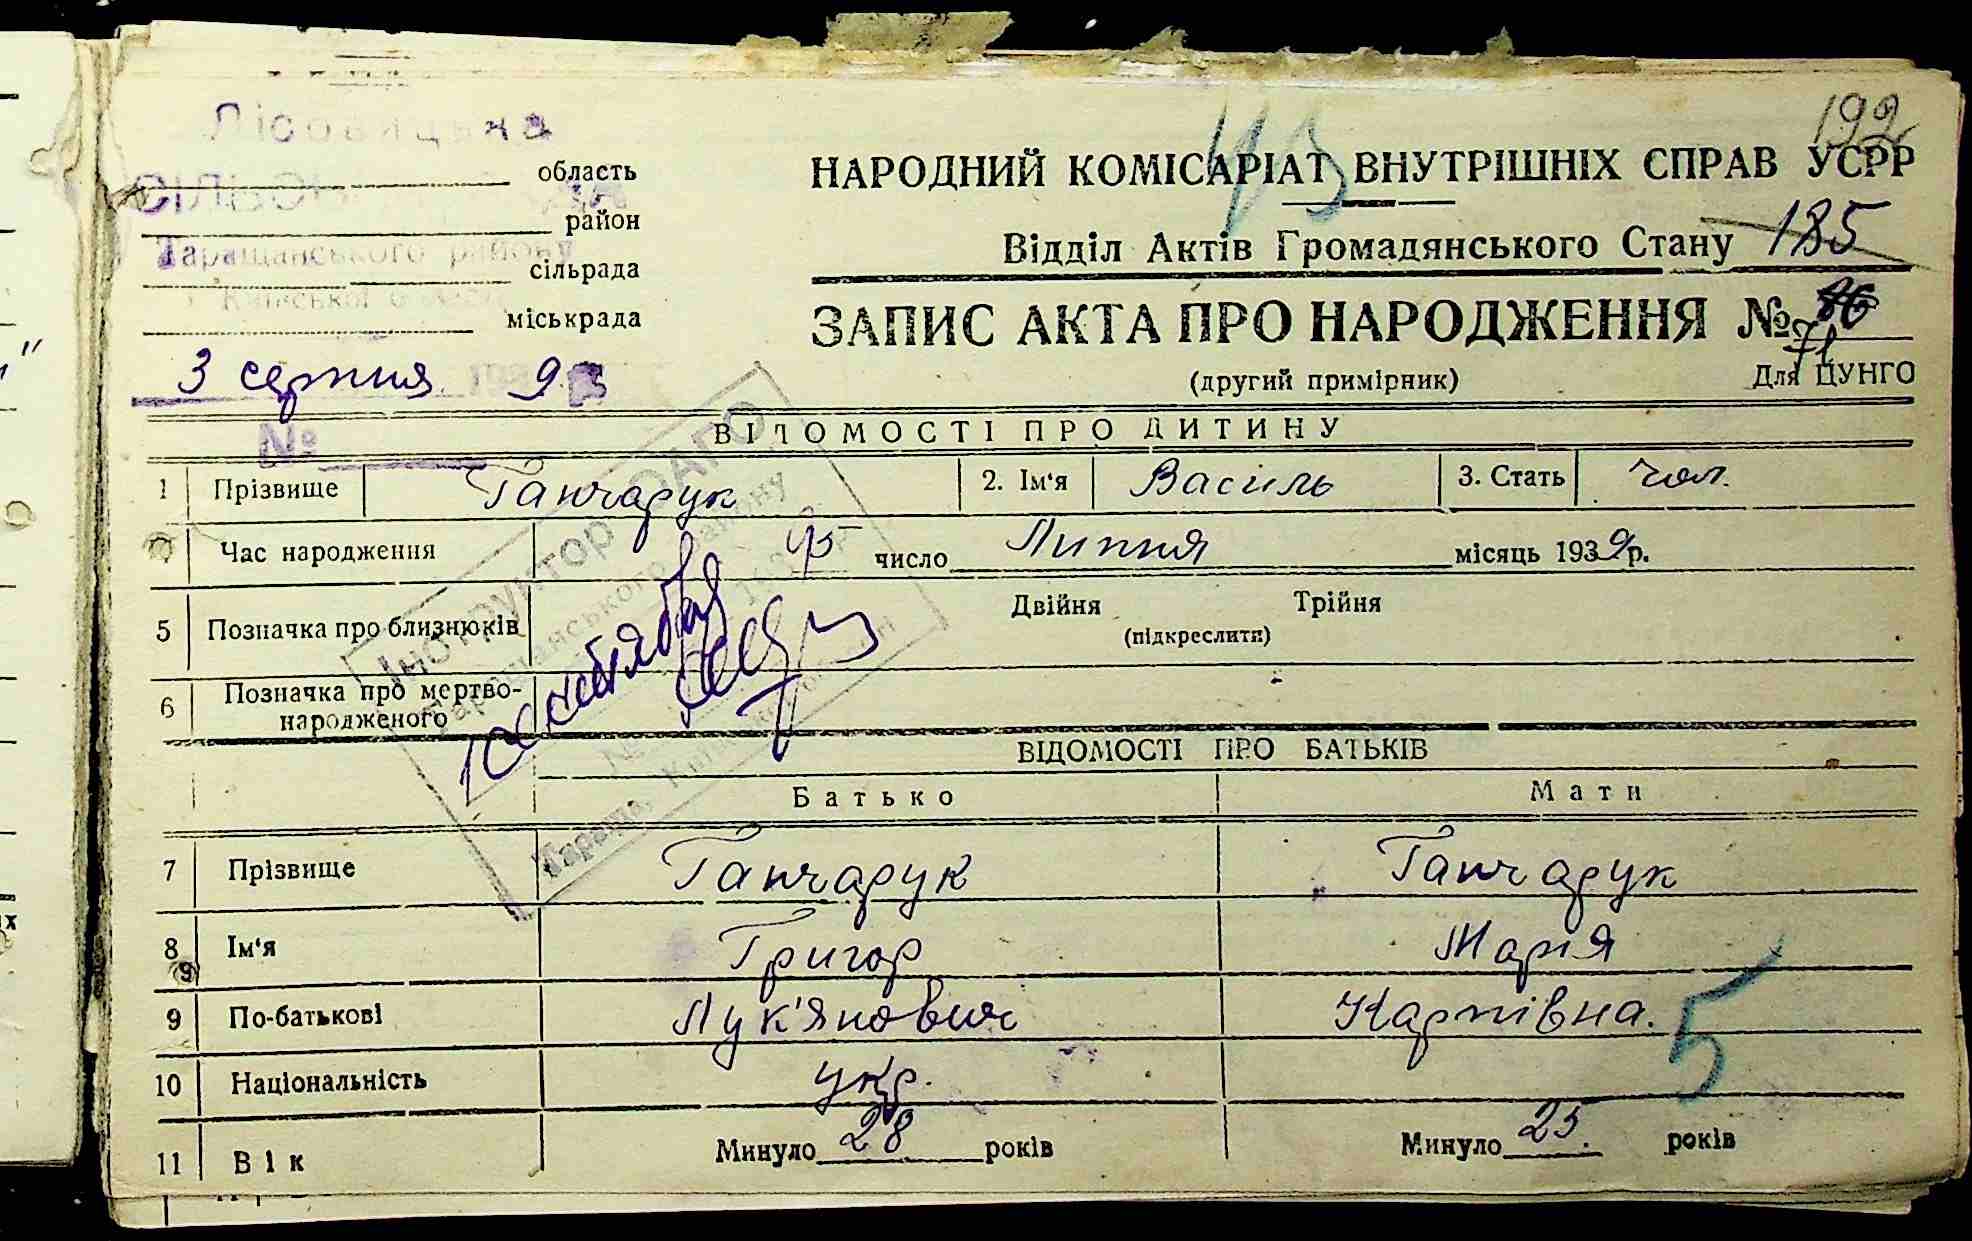 192
Лісовицька
область
район
Таращанського району
сільрада
Київської області
міськрада
НАРОДНИЙ КОМІСАРІАТ ВНУТРІШНІХ СПРАВ УСРР
Відділ Актів Громадянського Стану 185
ЗАПИС АКТА ПРО НАРОДЖЕННЯ № 86
71
3 серпня 193
(другий примірник) Для ЦУНГО
№
ВІДОМОСТІ ПРО ДИТИНУ
1 Прізвище Ганчарук 2. Ім'я Василь 3. Стать чол.
Час народження число Липня місяць 1939р.
5 Позначка про близнюків Двійня Трійня
(підкреслити)
6 Позначка про мертво-
народженого
Інструктор
ВІДОМОСТІ ПРО БАТЬКІВ
Батько Мати
7 Прізвище Ганчарук Ганчарук
8 Ім'я Григор Марія
9 По-батькові Лук'янович Карпівна.
5
10 Національність укр.
11 Вік Минуло 28 років Минуло 25. років